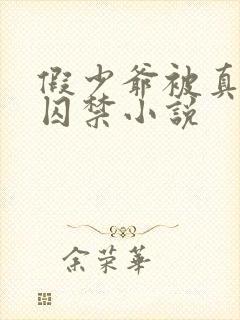 假少爷被真
囚禁小说
余荣华